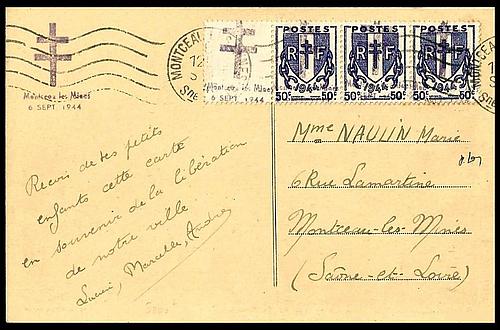 Montceau les Mines
6 SEPT 1944
MONTCEAU
12
Montceau les Mines
6 SEPT 1944
POSTES
RF
1944
50c 50c
POSTES
RF
1944
50c 50c
POSTES
RF
1944
50c 50c
Recois de tes petits
enfants cette carte
en souvenir de la libération
de notre ville
Lucien, Marcelle, Andre
Mme NAULIN Marie
6 Rue Lamartine
Montceau-les-Mines
(Saône-et-Loire)